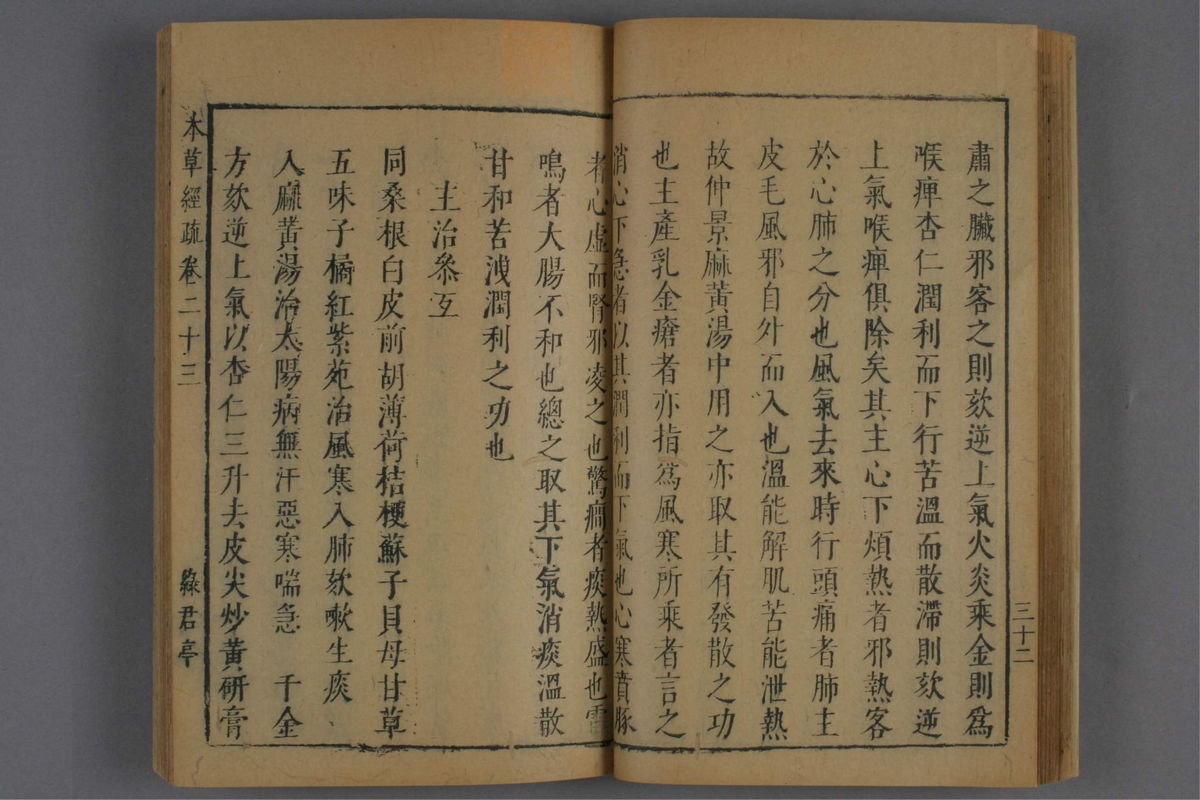 三十二
肅之臟邪客之則欬逆上氣火炎乘金則為
喉痺杏仁潤利而下行苦溫而散滯則欬逆
上氣喉痺俱除矣其主心下煩熱者邪熱客
於心肺之分也風氣去來時行頭痛者肺主
皮毛風邪自外而入也溫能解肌苦能泄熱
故仲景麻黃湯中用之亦取其有發散之功
也主產乳金瘡者亦指為風寒所乘者言之
消心下急者以其潤利而下氣也心寒賁豚
者心虛而腎邪凌之也驚癇者痰熱盛也雷
鳴者大腸不和也總之取其下氣消痰溫散
甘和苦洩潤利之功也
主治叅互
同桑根白皮前胡薄荷桔梗蘇子貝母甘草
五味子橘紅紫菀治風寒入肺欬嗽生痰
入麻黃湯治太陽病無汗惡寒喘急 千金
方欬逆上氣以杏仁三升去皮尖炒黃研膏
本草經疏卷二十三 綠君亭